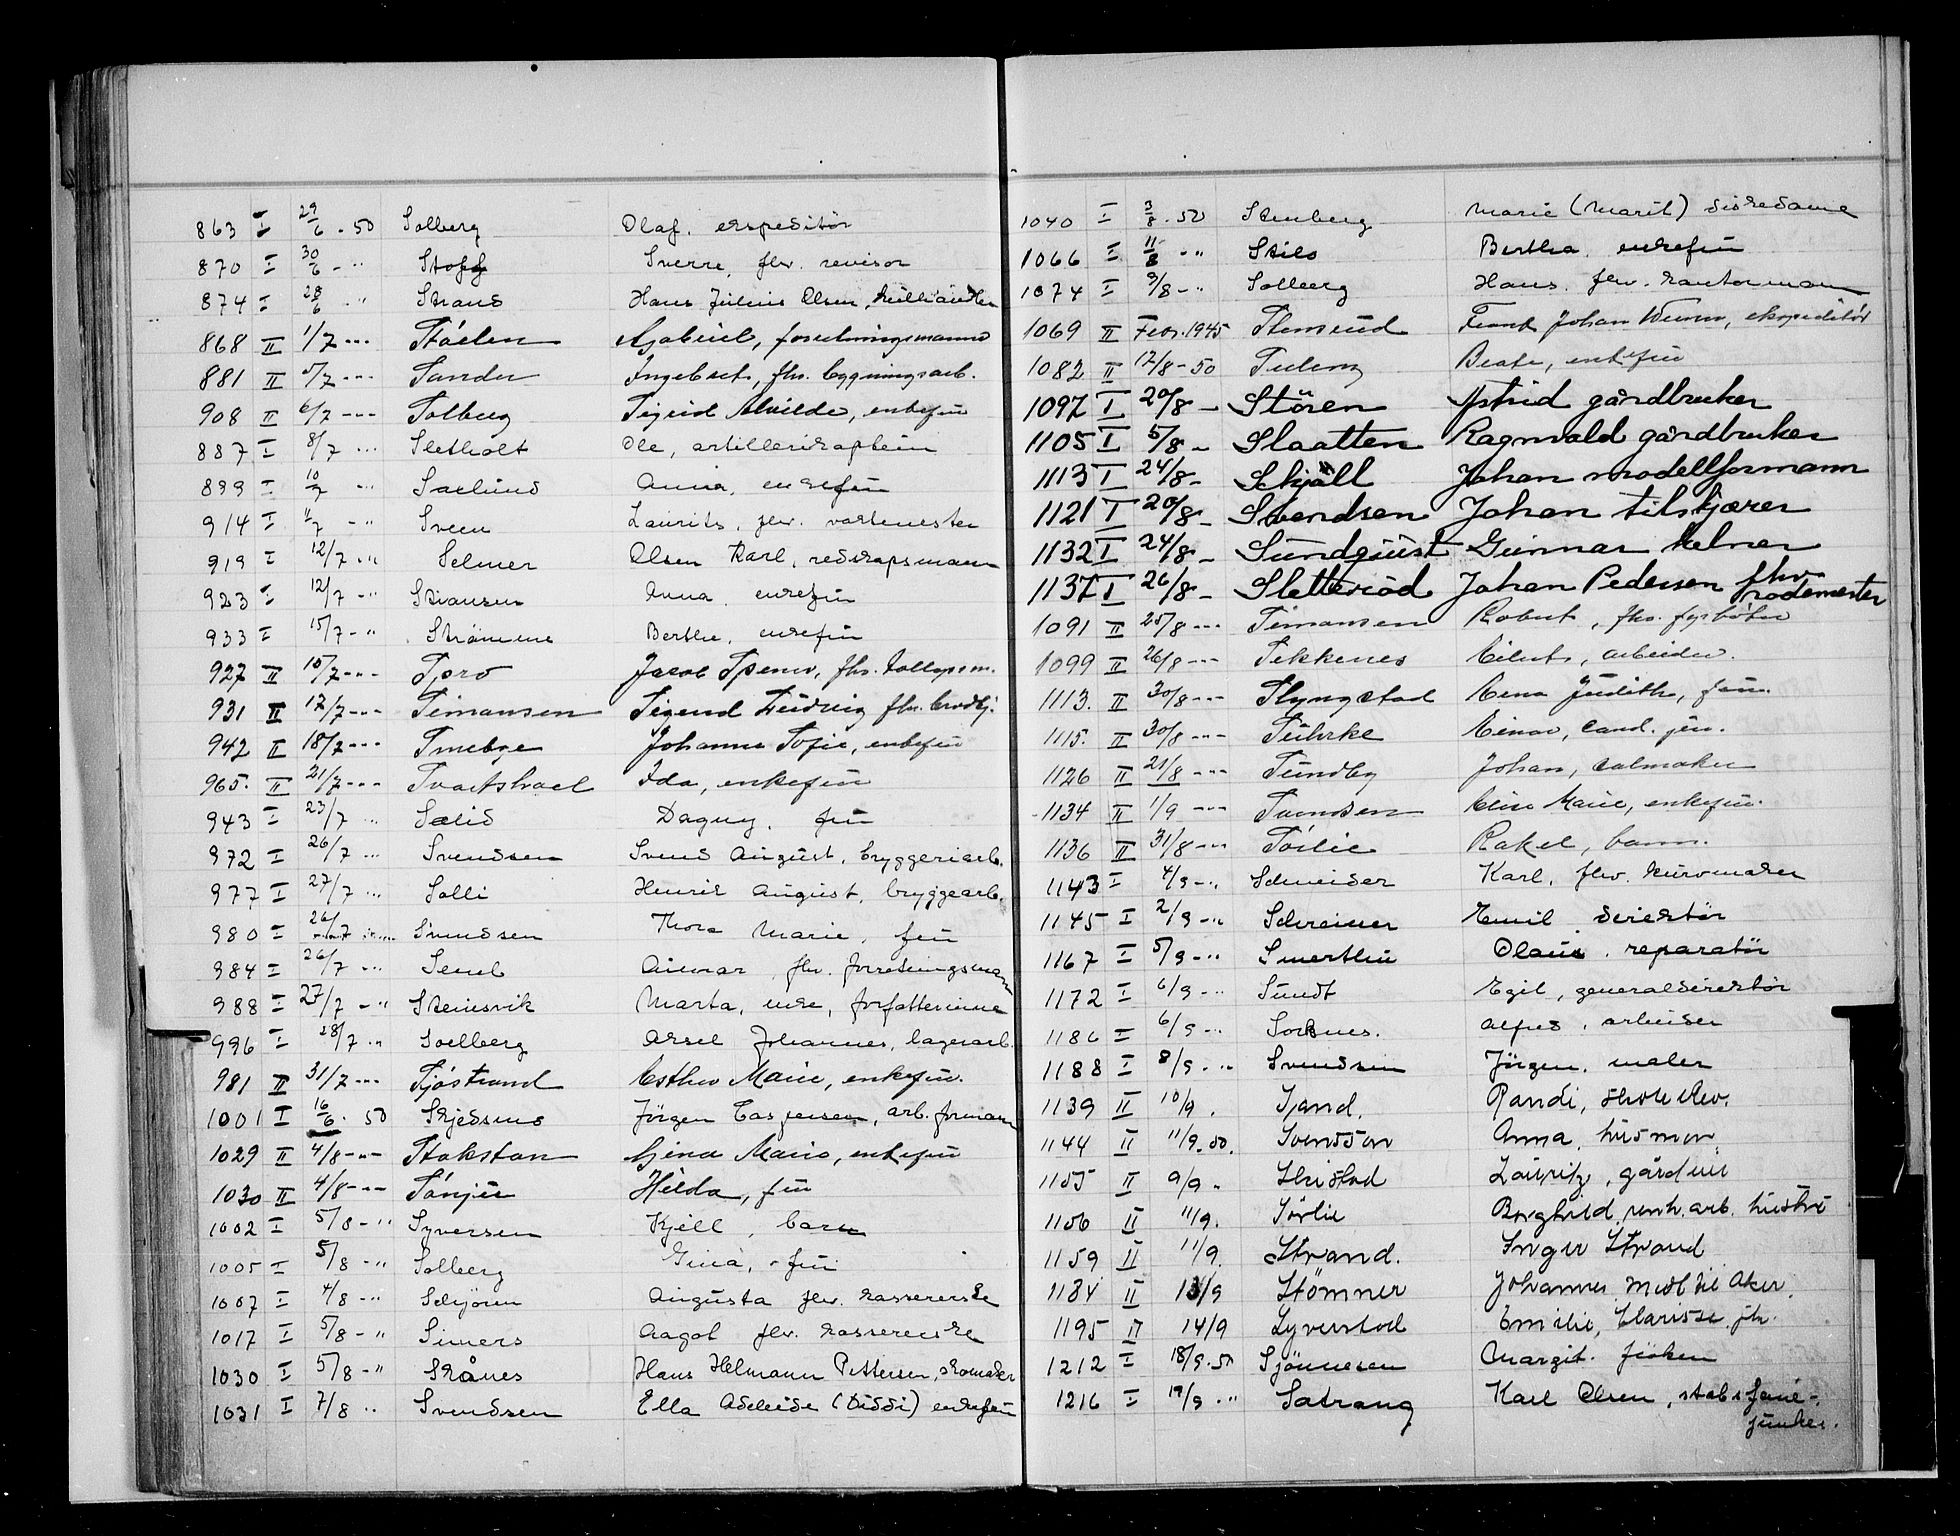 863 I 29/6 - 50 Solberg Olaf, ekspeditör
870 I 30/6 - " Stoff Sverre, fhv. revisor
874 I 28/6 " Strand Hans Julius Olsen, kullhandler
868 II 1/7 -"- Stöelen Gabriel, forretningsmann
881 II 5/7 -"- Sander Ingebret, fhv. bygningsarb.
908 II 6/7 -"- Solberg Sigrid Alvilde, enkefru
887 I 8/7 -"- Sletholt Ole, artillerikaptein
899 I 10/7 " Saelund Anna, enkefru
914 I 11/7 - " Sveen Laurits, fhv. vaktmester
919 I 12/7 - " Selmer Olsen Karl, redskapsmann
923 I 12/7 - " Stiansen Anna, enkefru
933 I 15/7 - " Strömme Berthe, enkefru
927 II 15/7 -"- Spro Jacob, fhv.
931 II 17/7 -"- Simonsen Sigurd Ludvig fhv. brodtkj.
942 II 18/7 -"- Smebye Johanne Sofie, enkefru
965. II 21/7 -"- Svartshoel Ida, enkefru
943 I 23/7 " Sælid Dagny, fru
972 I 26/7 -"- Svendsen Svend August, bryggeriarb.
977 I 27/7 -"- Solli Henrik August, bryggearb.
980 I 26/7 Svendsen Thora Marie, fru
984 I 26/7 -"- Semb Anmar, fhv. forretningsmann
988 I 27/7 - " Steinsvik Marta, enke, forfatterinne
996 I 28/7 " Soelberg Aksel Johannes, lagerarb.
981 II 31/7 -"- Sjöstrand Esther Marie, enkefru.
1001 I 16/6 . 50 Skjedsmo Jörgen Caspersen, arb. formann
1029 II 4/8 -"- Stokstan Gina Marie, enkefru
1030 II 4/8 -"- Sönju Hilda, fru
1002 I 5/8 - " Syversen Kjell, barn
1005 I 5/8 - " Solberg Gina, fru
1007 I 4/8 - " Schjören Augusta fhv. kassererske
1017 I 5/8 - " Simers Aagot fhv. kassererske
1030 I 5/8 - " Skånes Hans Helmann Pettersen, skomaker
1031 I 7/8 " Svendsen Ella Adeleide (Diddi) enkefru
1040 I 3/8 . 50 Stenberg Marie (Marit) diskedame
1066 I 11/8 - " Stils Bertha, enkefru
1074 I 9/8 - " Solberg Hans, fhv. kontormann
1069 II Febr. 1945 Stensrud Frank Johan, ekspeditör
1082 II 17/8 - 50 Suleng Beate, enkefru
1097 I 20/8 - Stören Astrid gårdbruker
1105 I 5/8 - Slaatten Ragnvald gårdbruker
1113 I 24/8 - Schjöll Johan modellformann
1121 I 20/8 - Svendsen Johan tilskjærer
1132 I 24/8 - Sundquist Gunnar kelner
1137 I 26/8 - Sletteröd Johan Pedersen fhv rodemester
1091 II 25/8 -"- Simonsen Robert, fhv. fyrböter
1099 II 26/8 -"- Sekkenes Eilert, arbeider.
1113. II 30/8 -"- Slyngstad Erna Judith, frue.
1115. II 30/8 -"- Sührke Einar, cand. jur.
1126 II 21/8 -"- Sundby Johan, salmaker
1134 II 1/9 -"- Svendsen Elise Marie, enkefru.
1136 II 31/8 -"- Sörlie Rakel, barn.
1143 I 4/9 - " Schneider Karl, fhv. kurvmaker
1145 I 2/9 - " Schreiner Emil direktör
1167 I 5/9 - " Smerthu Olaus, reparatör
1172 I 6/9 - " Sundt Egil, generaldirektör
1186 I 6/9 - " Sorknes. Alfred, arbeider
1188 I 8/9 . " Svendsen Jörgen, maler
1139 II 10/9 . Sand. Randi, skole elev.
1144 II 11/9.50. Svendsen Anna, husmor
1155 II 9/9 " Skistad Lauritz, gårdeier
1156 II 11/9. Sörlie Borghild, renh. arb. hustru
1159 II 11/9. Strand. Inger Strand
1184 II 13/9 Stömner Johannes, medl til Aker.
1195 II 14/9 Syverstad Emilie, Klarisse, fhv.
1212 I 18/9.50 Sjönnesen Margit, fröken
1216 I 19/9 . " Satrang Karl Olsen, stabsfane-
junker.